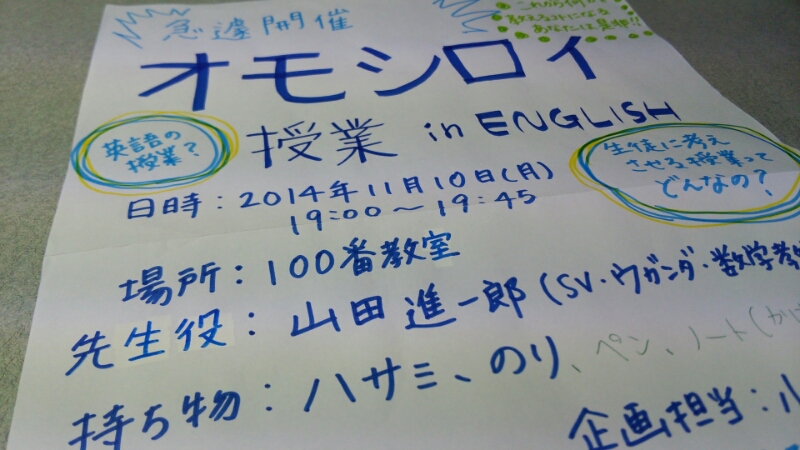 急遽開催
これから何か
教えるコトになる
あなたは是非!!
オモシロイ
授業 in ENGLISH
英語の
授業？
生徒に考え
させる授業って
どんなの？
日時：2014年11月10日(月)
19:00～19:45
場所：100番教室
先生役：山田進一郎(SV・ウガンダ・数学教
持ち物：ハサミ、のり、ペン、ノート(かけ
企画担当：